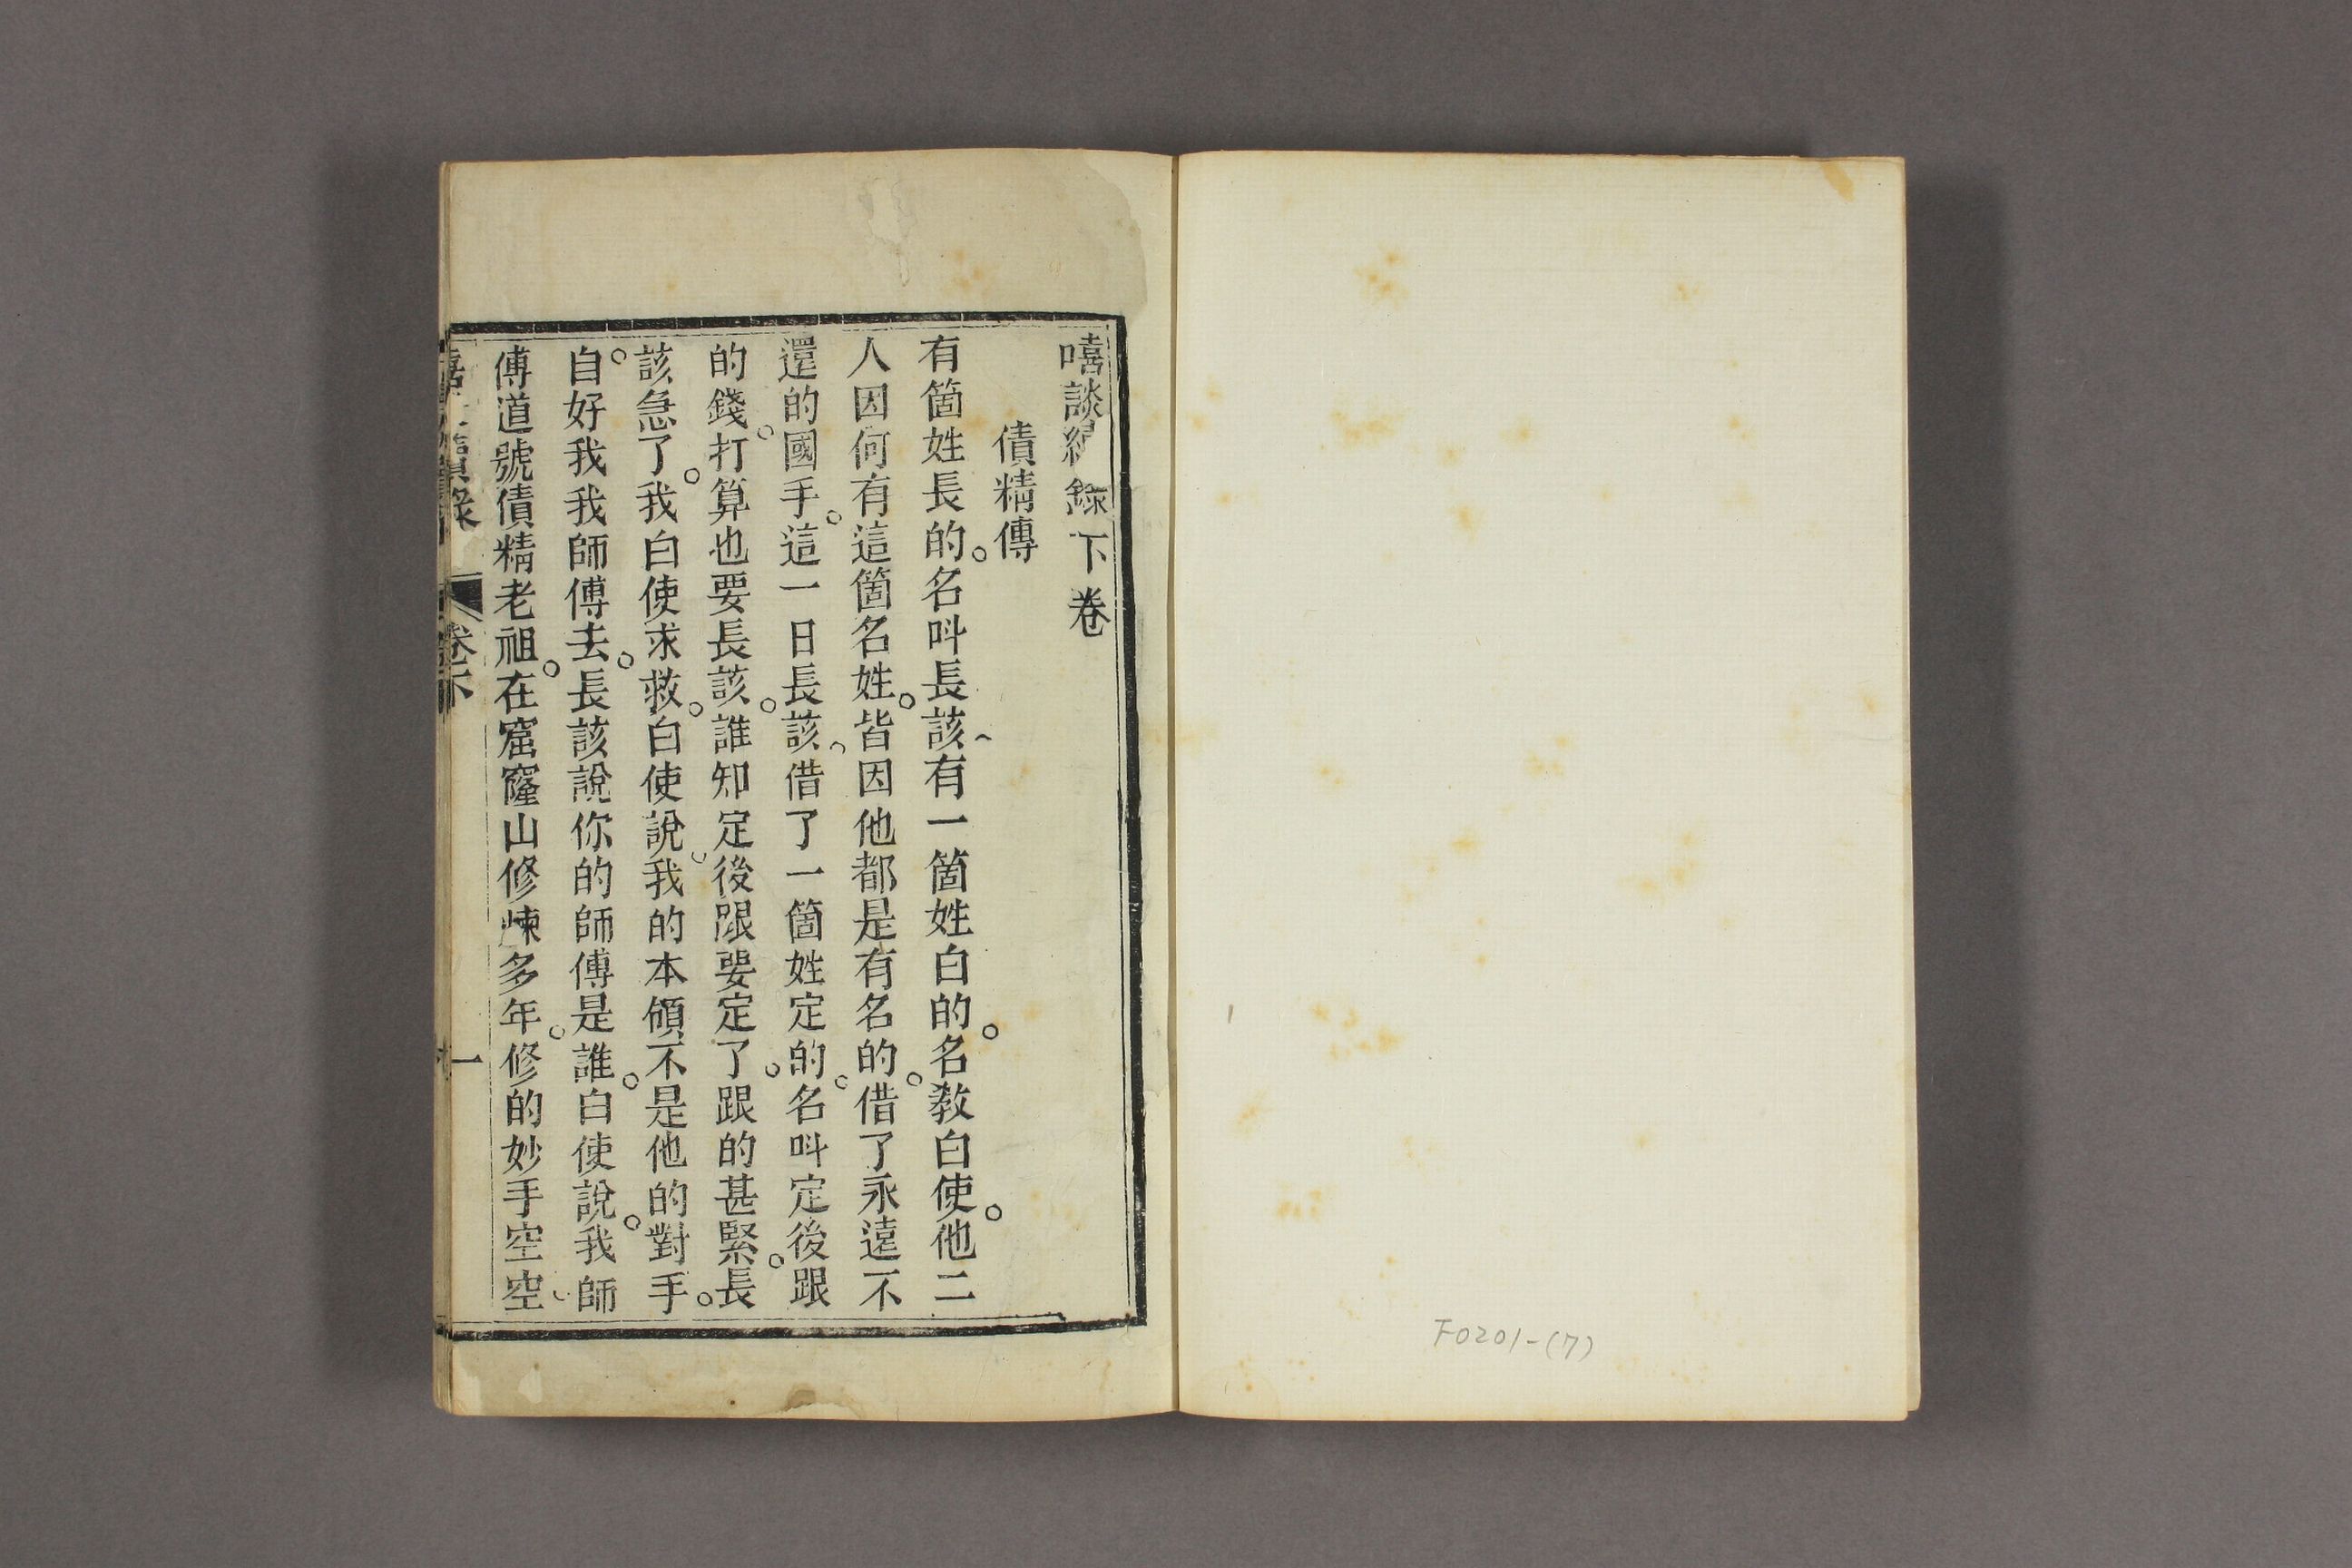 嘻談續錄下卷
債精傳
有箇姓長的。名呌長該。有一箇姓白的。名教白使。他二
人因何有這箇名姓。皆因他都是有名的。借了永遠不
還的國手。這一日長該。借了一箇姓定的。名呌定後跟
的錢。打算也要長該。誰知定後跟要定了。跟的甚緊。長
該急了。我白使求救。白使說。我的本領不是他的對手。
自。好我我師傅去。長該說你的師傅是誰。白使說。我師
傅道號債精老祖。在窟窿山修煉多年。修的妙手空空。
錄 卷下 一
F0201-(7)